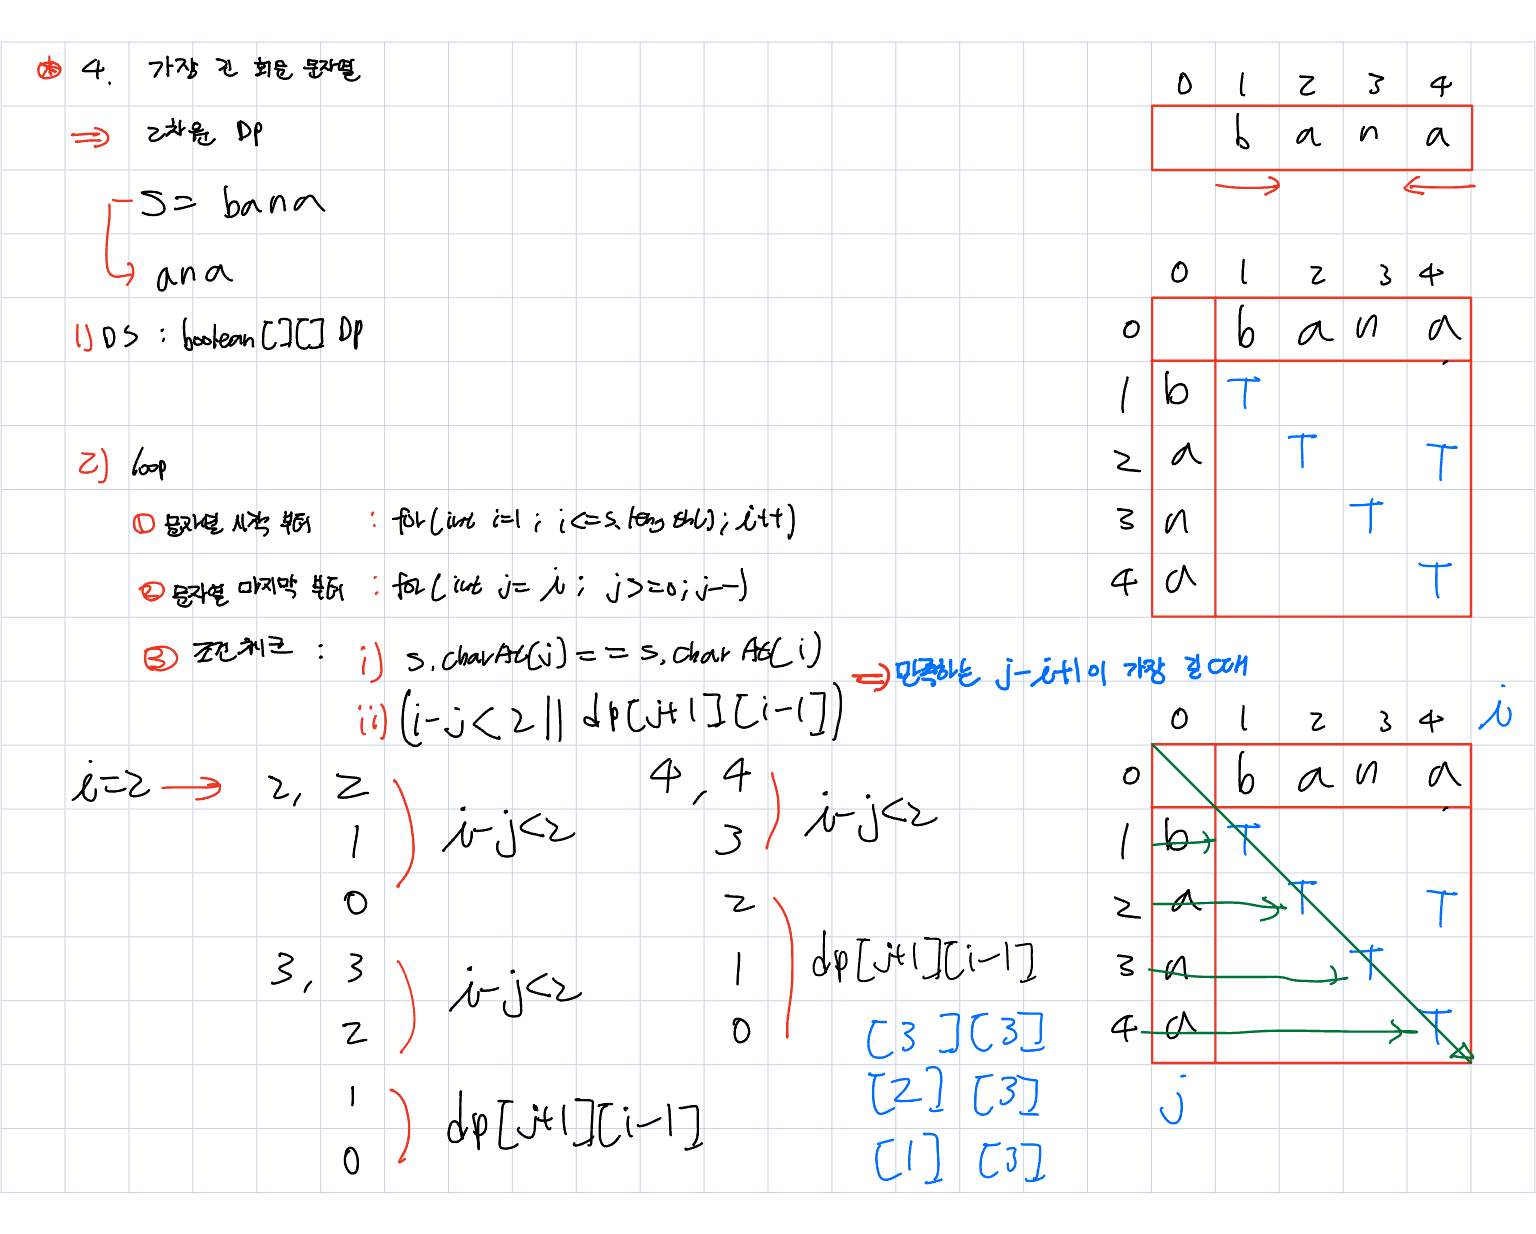 4. 가장 긴 회문 문자열
⇒ 2차원 DP
S = bana
ana
1) DS : boolean[][] DP
2) loop
① 문자열 시작 부터 : for(int i=1 ; i<=s.length(); i++)
② 문자열 마지막 부터 : for(int j=i ; j>=0; j--)
③ 조건체크 : i) s.charAt(j) == s.charAt(i)
ii) (i-j<2 || dp[j+1][i-1])
⇒ 만족하는 j-i+1이 가장 길때
i=2 → 2, 2
1
0
i-j<2
3, 3
2
i-j<2
1
0
dp[j+1][i-1]
4, 4
3
i-j<2
2
1
0
dp[j+1][i-1]
[3][3]
[2][3]
[1][3]
0 1 2 3 4
b a n a
0 1 2 3 4
0 b a n a
1 b T
2 a T T
3 n T
4 a T
0 1 2 3 4 i
0 b a n a
1 b T
2 a T T
3 n T
4 a T
j